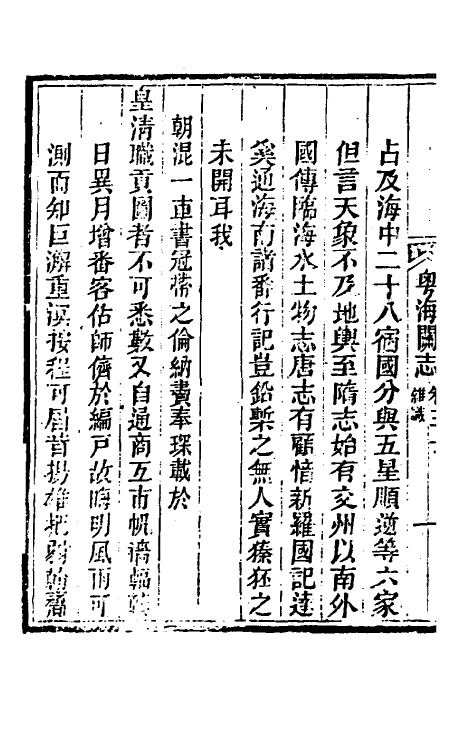 粤海關志 卷三十 雜識 一
占及海中二十八宿國分與五星順逆等六家
但言天象不及地輿至隋志始有交州以南外
國傳臨海水土物志唐志有顧愔新羅國記達
奚通海南諸番行記豈鉛槧之無人實獉狉之
未開耳我
朝混一車書冠帶之倫納贄奉琛載於
皇清職貢圖者不可悉數又自通商互市帆檣輻
日異月增番客估師儕於編戸故晦明風雨可
測而知巨澥重溟按程可屆昔揚雄把弱翰齎